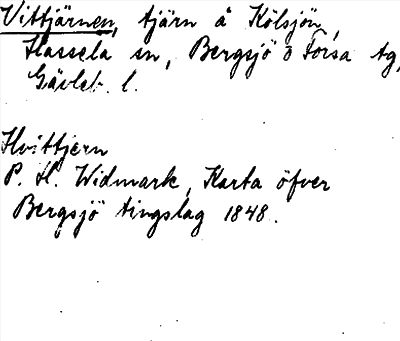 Vittjärnen, tjärn å Kölsjön,
Hassela sn, Bergsjö o Forsa tg,
Gävleb. l.
Hvittjern
P. H. Widmark, Karta öfver
Bergsjö tingslag 1848.